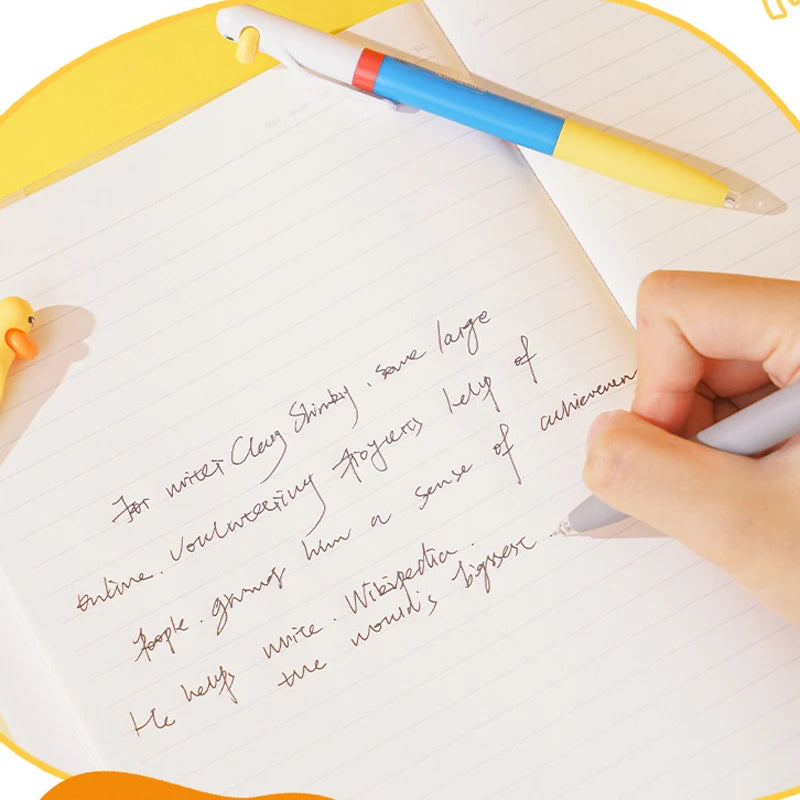 SAT
For writer Clay Shirky, some large
online. voulnteering progects help of
people. giving him a sense of achievemen
He helps write. Wikipedia.
the would's biggest